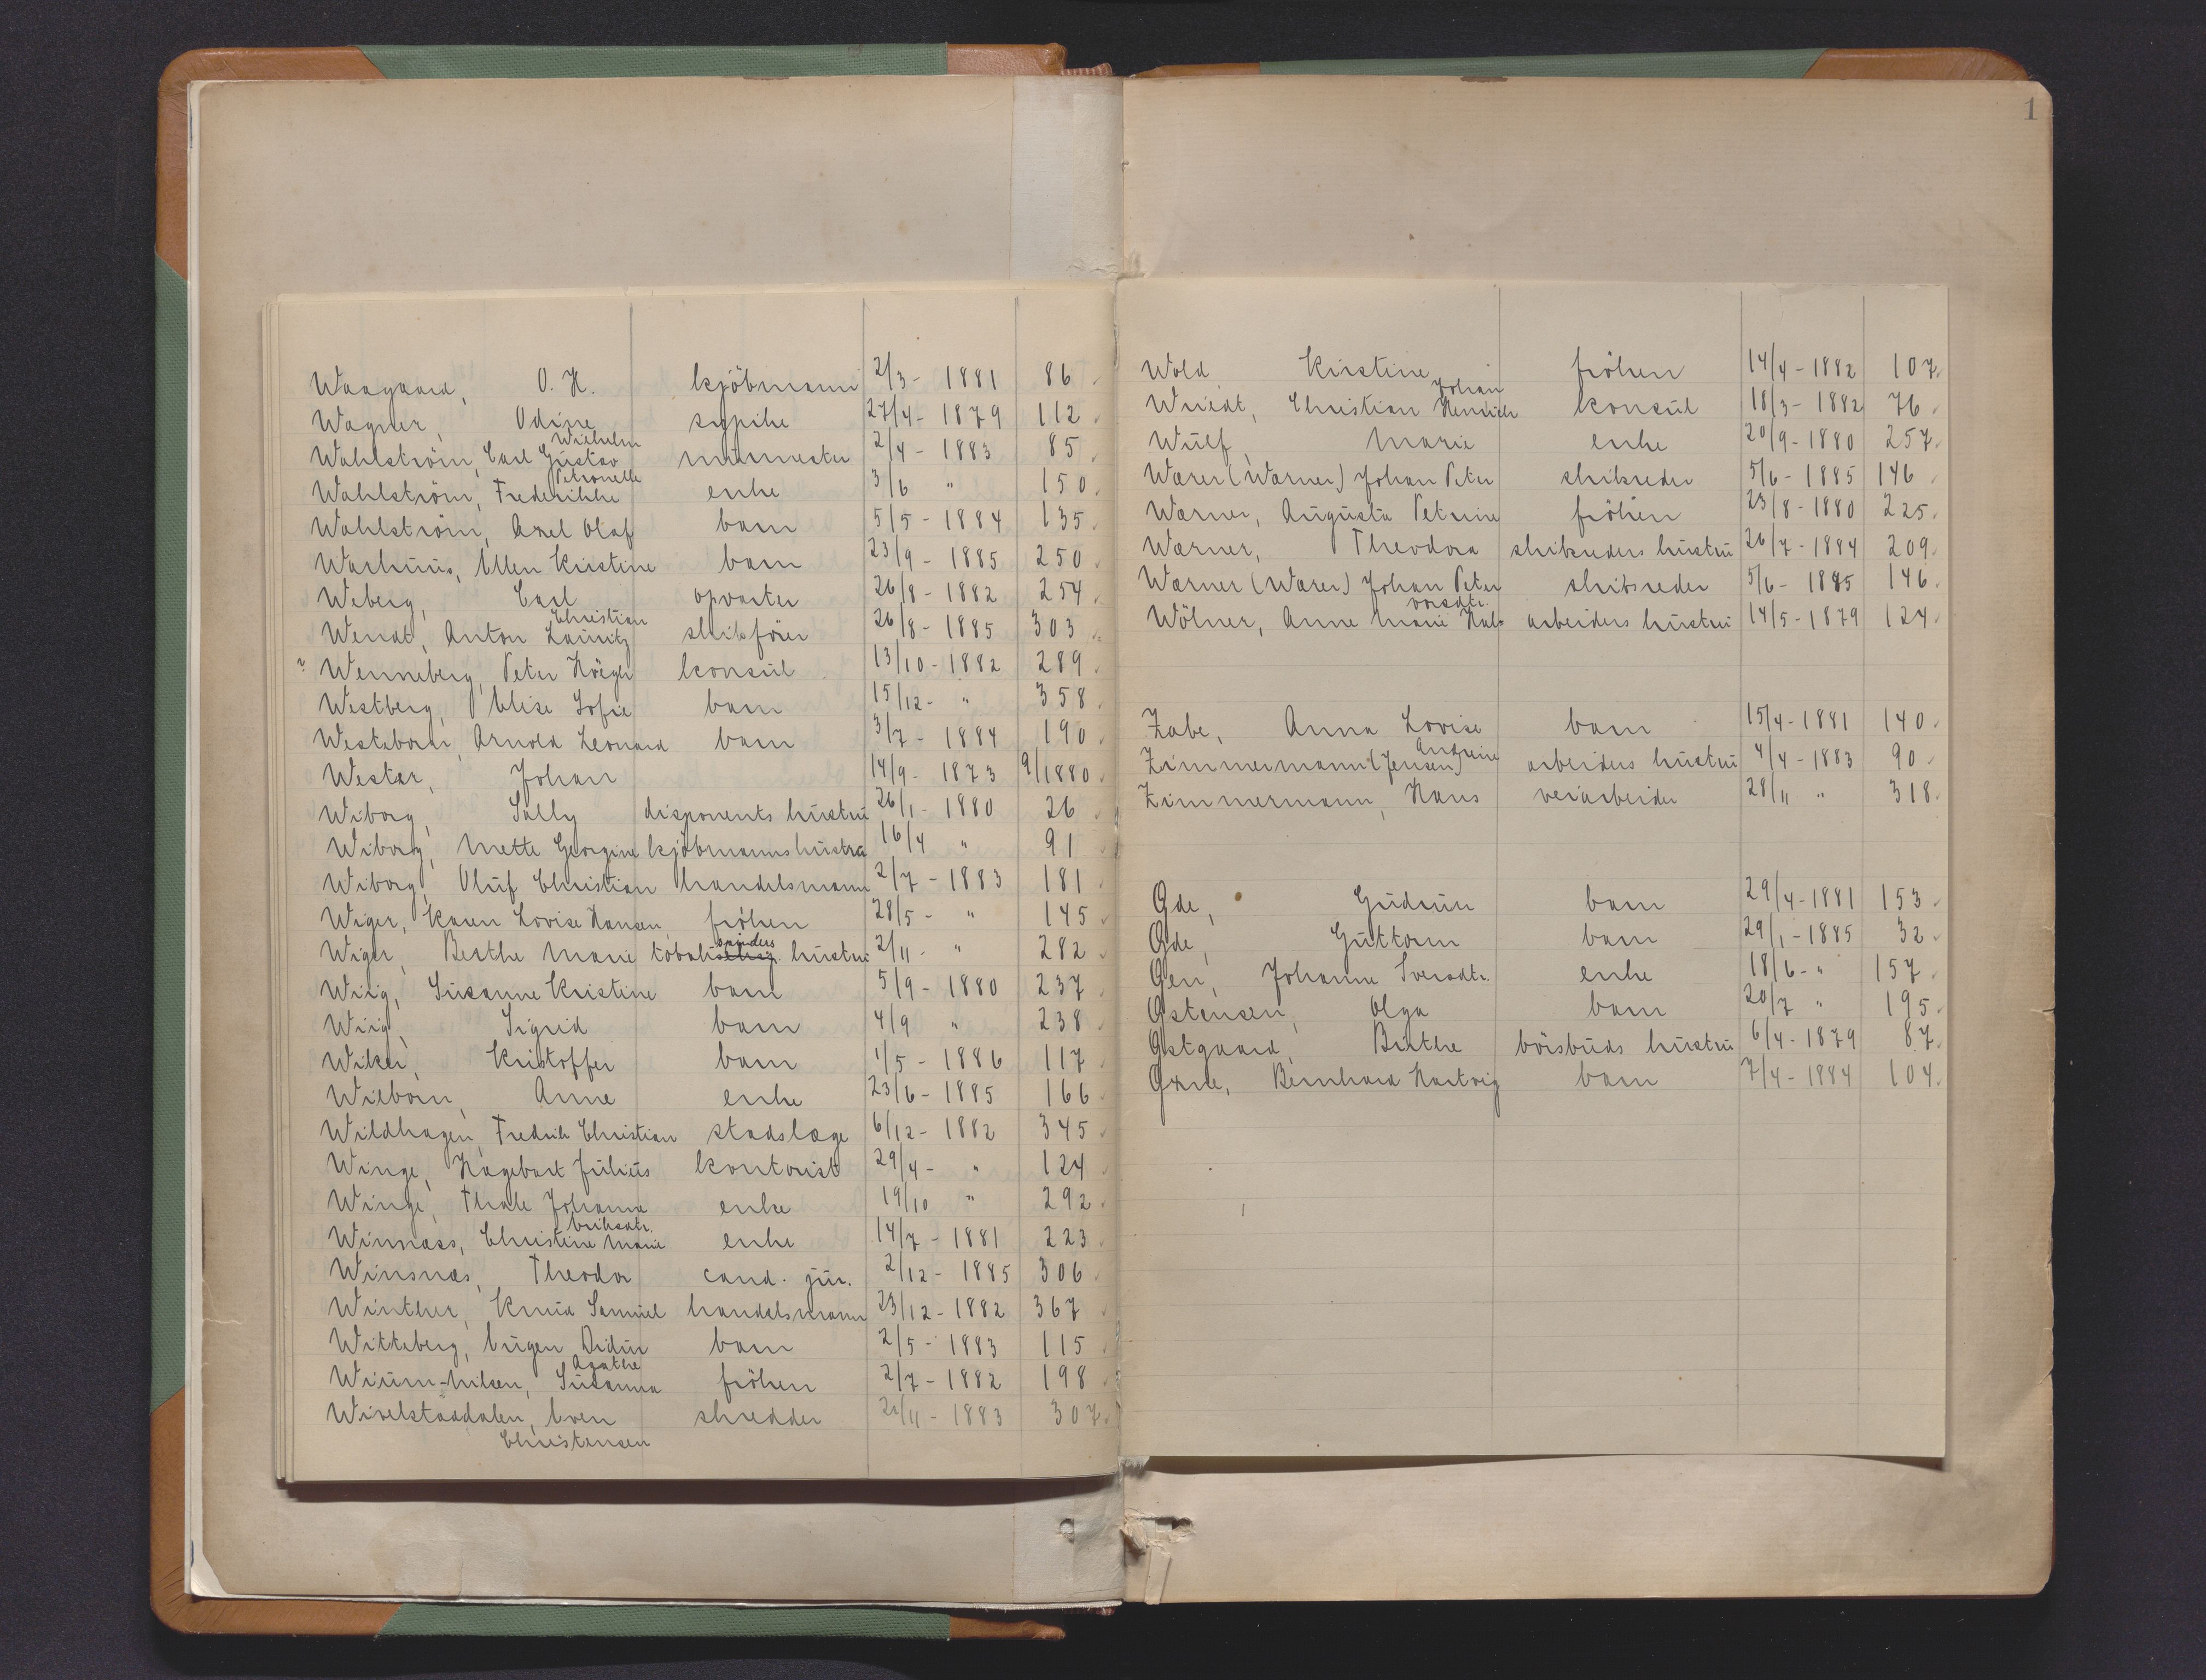 Waagaard, O. H. kjöbmann 2/3 - 1881 86
Wagner, Odine sypike 27/4 - 1879 112
Wahlström, Carl Gustav Wilhelm murmester 2/4 - 1883 85
Wahlström, Frederikke Petronelle enke 3/6 " 150
Wahlström, Axel Olaf barn 5/5 - 1884 135
Warhuus, Ellen Kirstine barn 23/9 - 1885 250
Weberg, Carl opvarter 26/8 - 1882 254
Wendt, Anton Lauritz Christian skibsförer 26/8 - 1885 303
? Wenneberg, Peter Höegh konsul 13/10 - 1882 289
Westberg, Elise Sofie barn 15/12 - " 358
Westeborn, Arnold Leonard barn 3/7 - 1884 190
Wester, Johan 14/9 - 1873 9/1880
Wiborg, Sally disponents hustru 26/1 - 1880 26
Wiborg, Mette Georgine kjöbmanns hustru 16/4 " 91
Wiborg, Oluf Christian handelsmann 2/7 - 1883 181
Wiger, Karen Lovise Hansen, fröken 28/5 - " 145
Wiger, Berthe Marie tobakspinders hustru 2/11 - " 282
Wiig, Susanne Kristine barn 5/9 - 1880 237
Wiig, Sigrid barn 4/9 " 238
Wiker, Kristoffer barn 1/5 - 1886 117
Wilborn, Anne enke 23/6 - 1885 166
Wildhagen, Fredrik Christian stadslæge 6/12 - 1882 345
Winge, Hagebart Julius kontorist 29/4 - " 124
Winge, Thale Johanna enke 19/10 " 292
Winnæss, Christine Marie Eriksdtr. enke 14/7 - 1881 223
Winsnæs, Theodor cand. jur. 2/12 - 1885 306
Winther, Knud Samuel handelsmann 23/12 - 1882 367
Witteberg, Eugen Didrir barn 2/5 - 1883 115
Wium-Nilsen, Susanna Agathe fröken 2/7 - 1882 198
Wivelstaddalen, Even Christensen skredder 21/11 - 1883 307
1
Wold Kirstine fröken 14/4 - 1882 107
Wriedt, Christian Hendrich Johan konsul 18/3 - 1882 76
Wulf, Marie enke 20/9 - 1880 257
Wærer (Wærner) Johan Peter skibsreder 5/6 - 1885 146
Wærner, Augusta Petrine fröken 23/8 - 1880 225
Wærner, Theodora skibsreders hustru 26/7 - 1884 209
Wærner (Wærer) Johan Peter skibsreder 5/6 - 1885 146
Wölner, Anne Marie Halvorsdtr. arbeiders hustru 14/5 - 1879 124
Zabe, Anna Lovise barn 15/4 - 1881 140
Zimmermann (Jensen) Andrine arbeiders hustru 4/4 - 1883 90
Zimmermann, Hans veiarbeider 28/11 " 318
Øde, Gudrun barn 29/4 - 1881 153
Øde, Guttorm barn 29/1 - 1885 32
Øen, Johanne Iversdtr. enke 18/6 - " 157
Østensen, Olga barn 20/7 " 195
Østgaard, Birthe börsbuds hustru 6/4 - 1879 87
Øxne, Bernhard Hartvig barn 7/4 - 1884 104